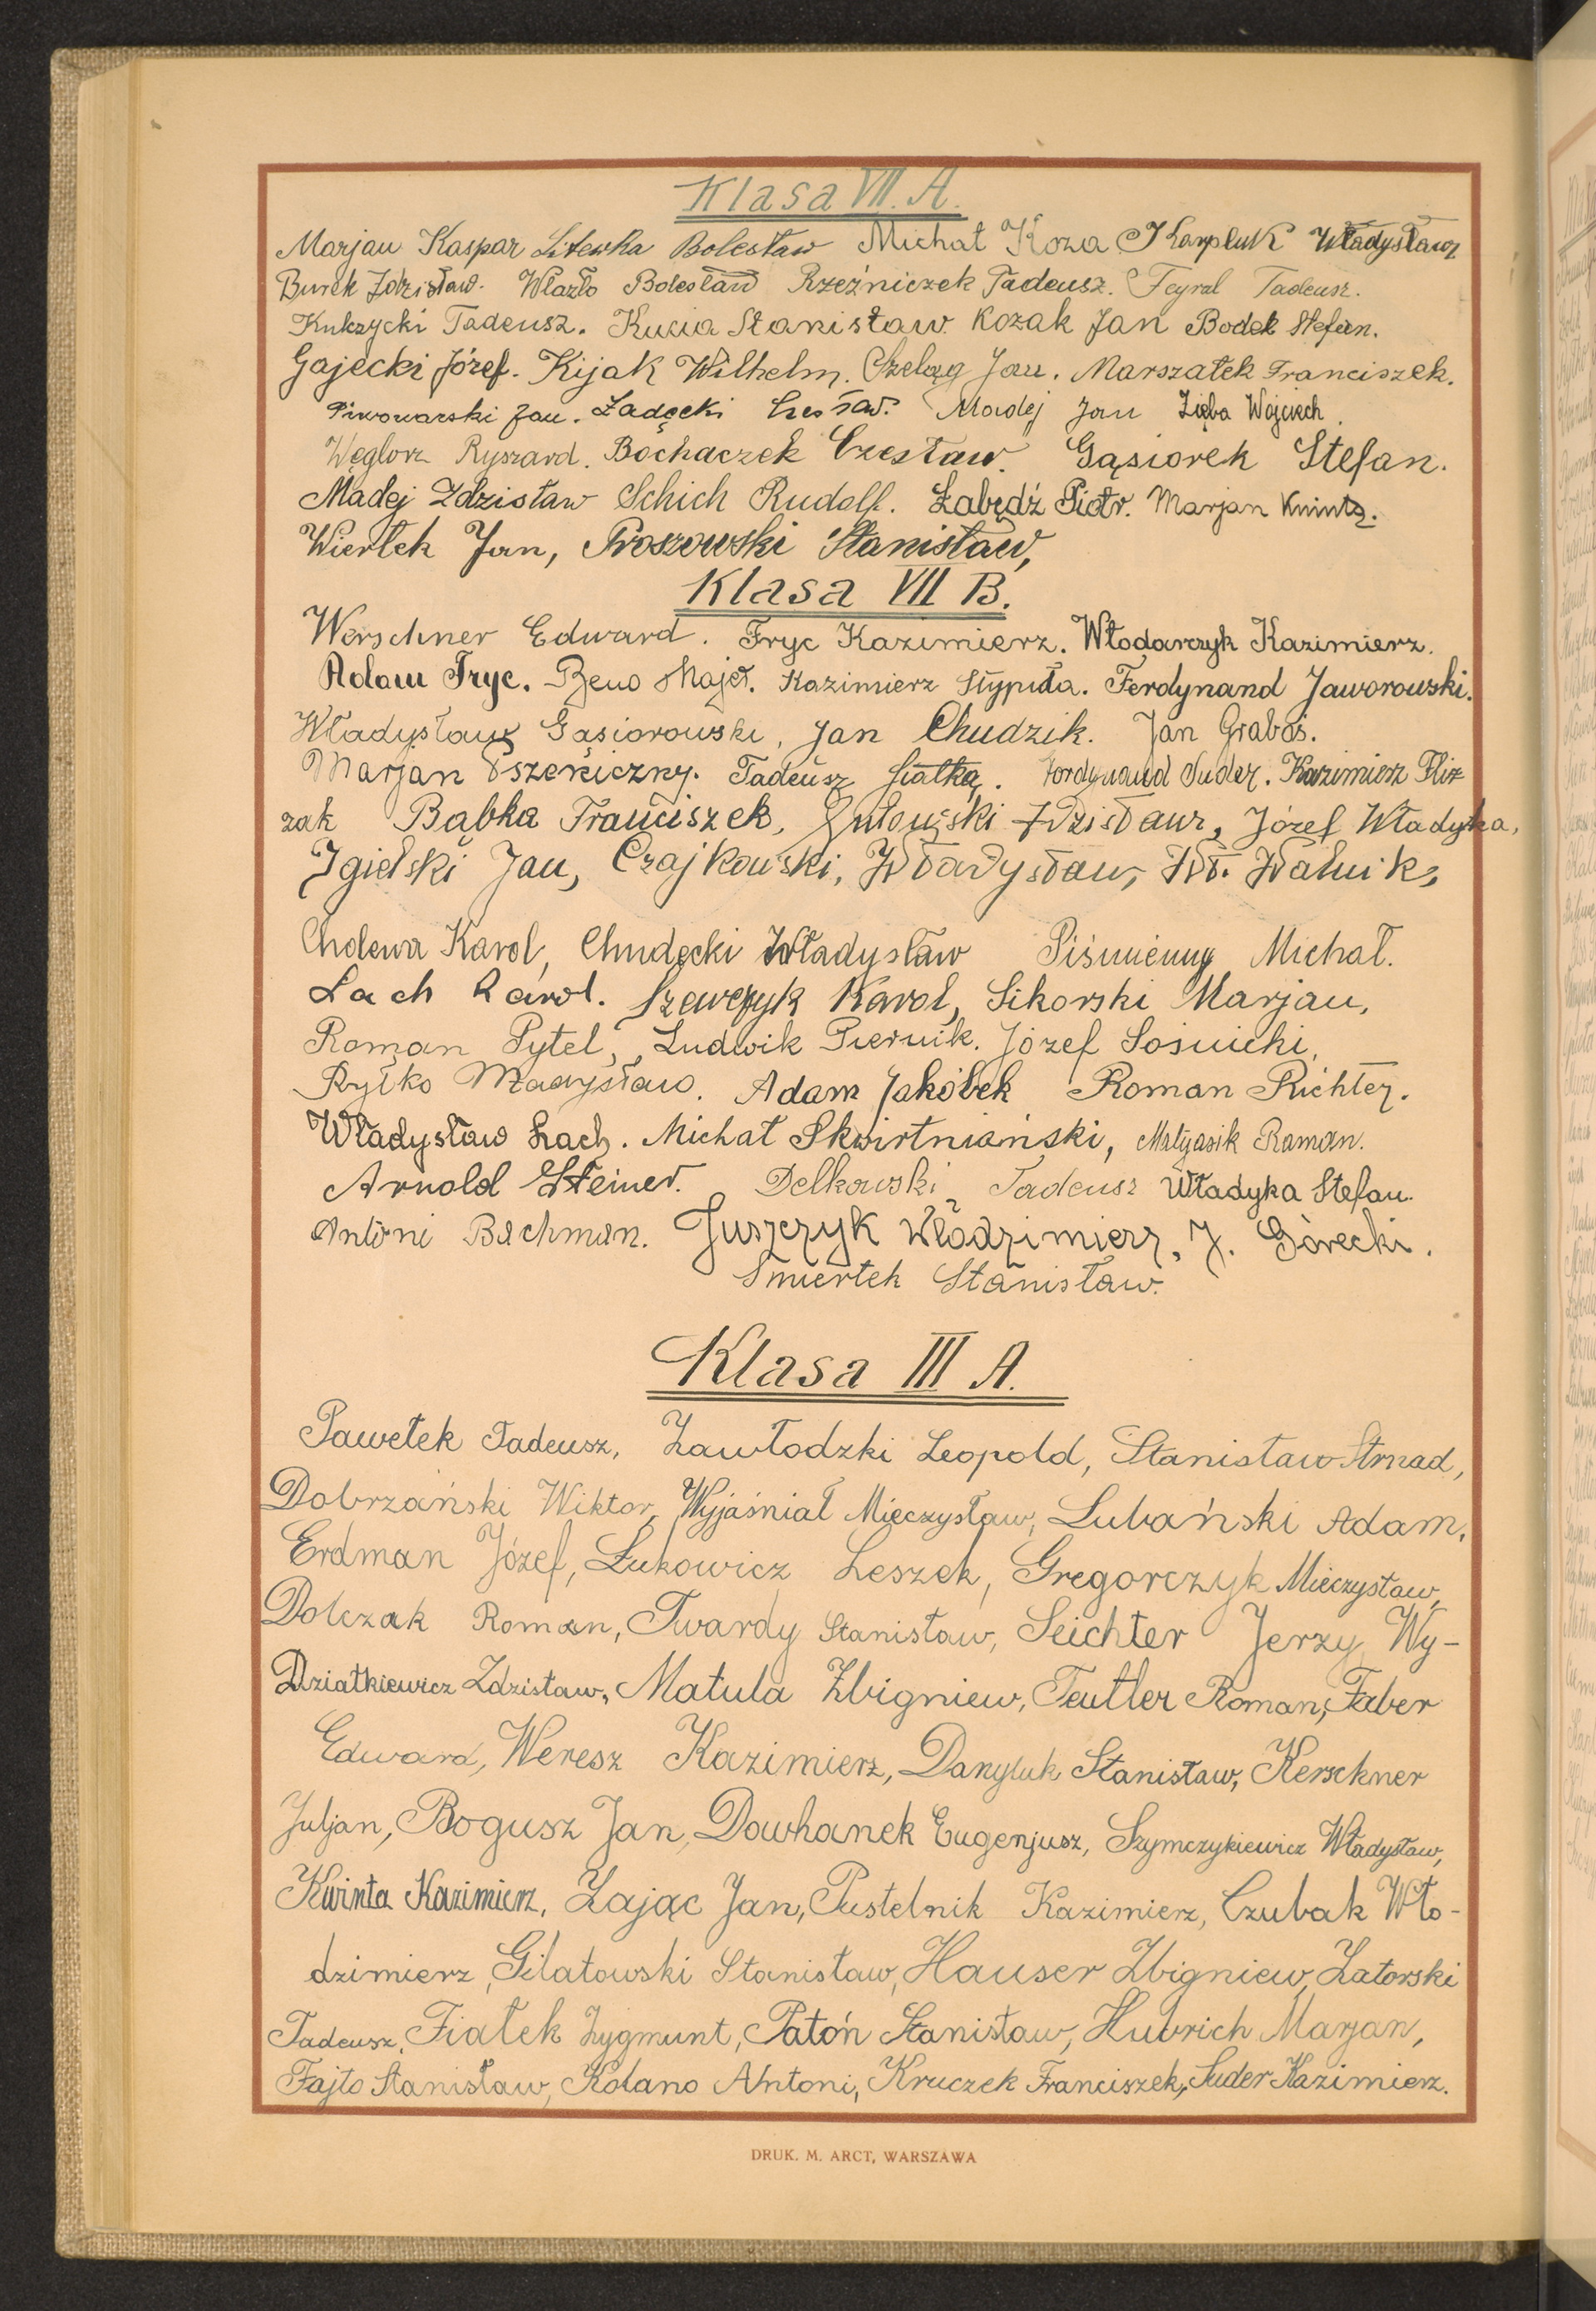 Klasa VII. A.
Marjan Kaspar Litewka Bolesław Michał Koza Karpluk Władysław
Burek Zdzisław. Wlazło Bolesław Rzeźniczek Tadeusz. Tadeusz.
Kukzycki Tadeusz. Kucia Stanisław. Kozak Jan Bodek Stefan.
Gajecki Józef. Kijak Wilhelm. Szeląg Jan. Marszałek Franciszek.
Piwowarski Jan. Ładęcki Czesław. Madej Jan Zięba Wojciech
Węglorz Ryszard. Bochaczek Czesław. Gąsiorek Stefan.
Madej Zdzisław Schich Rudolf. Łabędź Piotr. Marjan Kwinta.
Wiertek Jan, Proszowski Stanisław,
Klasa VII B.
Werschner Edward. Fryc Kazimierz. Włodarczyk Kazimierz.
Adam Fryc. Beno Majer. Kazimierz Stypuła. Ferdynand Jaworowski.
Władysław Gąsiorowski, Jan Chudzik. Jan Graboś.
Marjan Pszeniczny. Tadeusz Siatka. Ferdynand Suder. Kazimierz Fliz
zak Bąbka Franciszek, Gutowski Zdzisław, Józef Władyka,
Igielski Jan, Czajkowski, Władysław, Wł. Watnik,
Cholewa Karol, Chudęcki Władysław Piśmienny Michał.
Lach Karol. Szewczyk Karol, Sikorski Marjan,
Roman Pytel, Ludwik Piernik. Józef Sośnicki,
Ryłko Władysław. Adam Jakóbek Roman Richter.
Władysław Lach. Michał Skwirtniański, Matyasik Roman.
Arnold Steiner. Delkowski Tadeusz Władyka Stefan.
Antoni Bachman. Juszczyk Włodzimierz, J. Górecki.
Śmiertek Stanisław.
Klasa III A.
Pawełek Tadeusz, Zawłodzki Leopold, Stanisław Strnad,
Dobrzański Wiktor, Wyjaśniał Mieczysław, Lubański Adam,
Erdman Józef, Łukowicz Leszek, Gregorczyk Mieczysław,
Dolczak Roman, Twardy Stanisław, Seichter Jerzy, Wy-
Działkiewicz Zdzisław, Matula Zbigniew, Teutler Roman, Faber
Edward, Weresz Kazimierz, Danyluk Stanisław, Kerschner
Juljan, Bogusz Jan, Dowhanek Eugenjusz, Szymczykiewicz Władysław,
Kwinta Kazimierz, Zając Jan, Pustelnik Kazimierz, Czubak Wło-
dzimierz, Gilatowski Stanisław, Hauser Zbigniew, Zatorski
Tadeusz, Fiałek Zygmunt, Patoń Stanisław, Hubrich Marjan,
Fajto Stanisław, Kolano Antoni, Kruczek Franciszek, Suder Kazimierz.
DRUK. M. ARCT, WARSZAWA